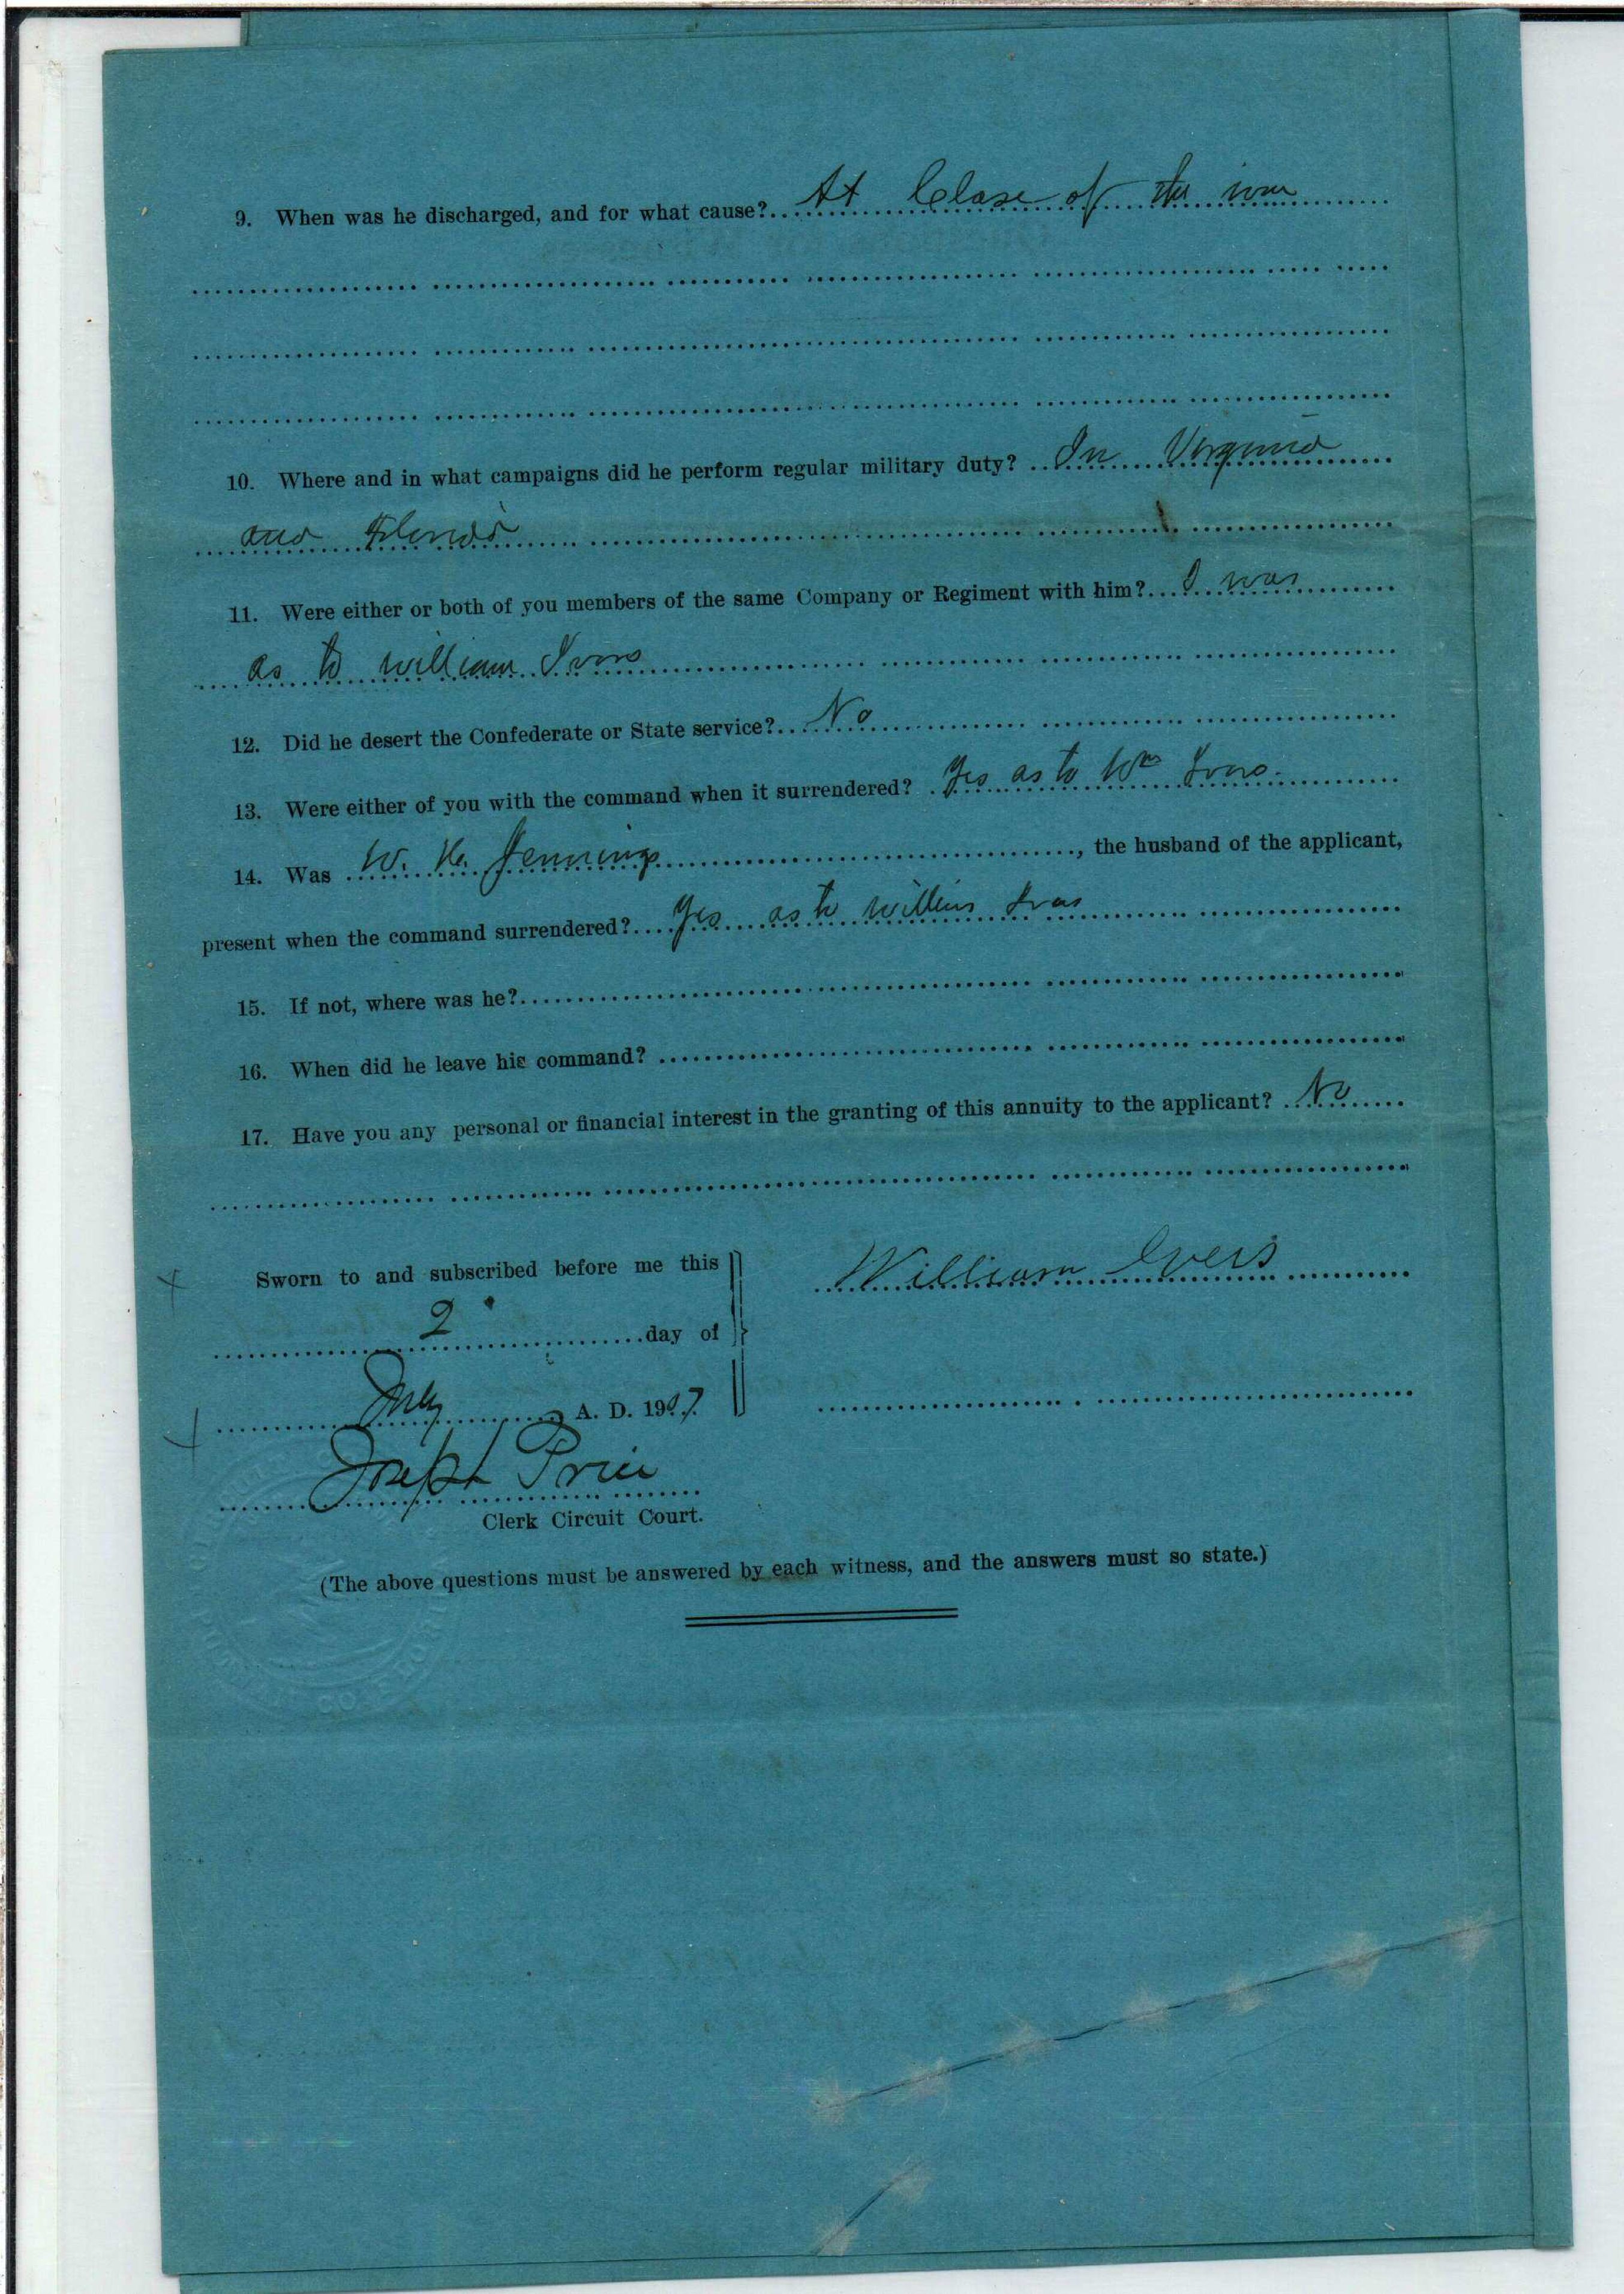 9. When was he discharged, and for what cause? At Close of the war
10. Where and in what campaigns did he perform regular military duty? In Virginia
and Florida
11. Were either or both of you members of the same Company or Regiment with him? I was
as to William Ivers
12. Did he desert the Confederate or State service? No
13. Were either of you with the command when it surrendered? Yes as to Wm Ivers
14. Was W. H. Jennings, the husband of the applicant,
present when the command surrendered? Yes as to
15. If not, where was he?
16. When did he leave his command?
17. Have you any personal or financial interest in the granting of this annuity to the applicant? No
Sworn to and subscribed before me this
William Ivers
2 day of
July A. D. 1907
Joseph Price
Clerk Circuit Court.
(The above questions must be answered by each witness, and the answers must so state.)
PUTNAM CO. FLORIDA